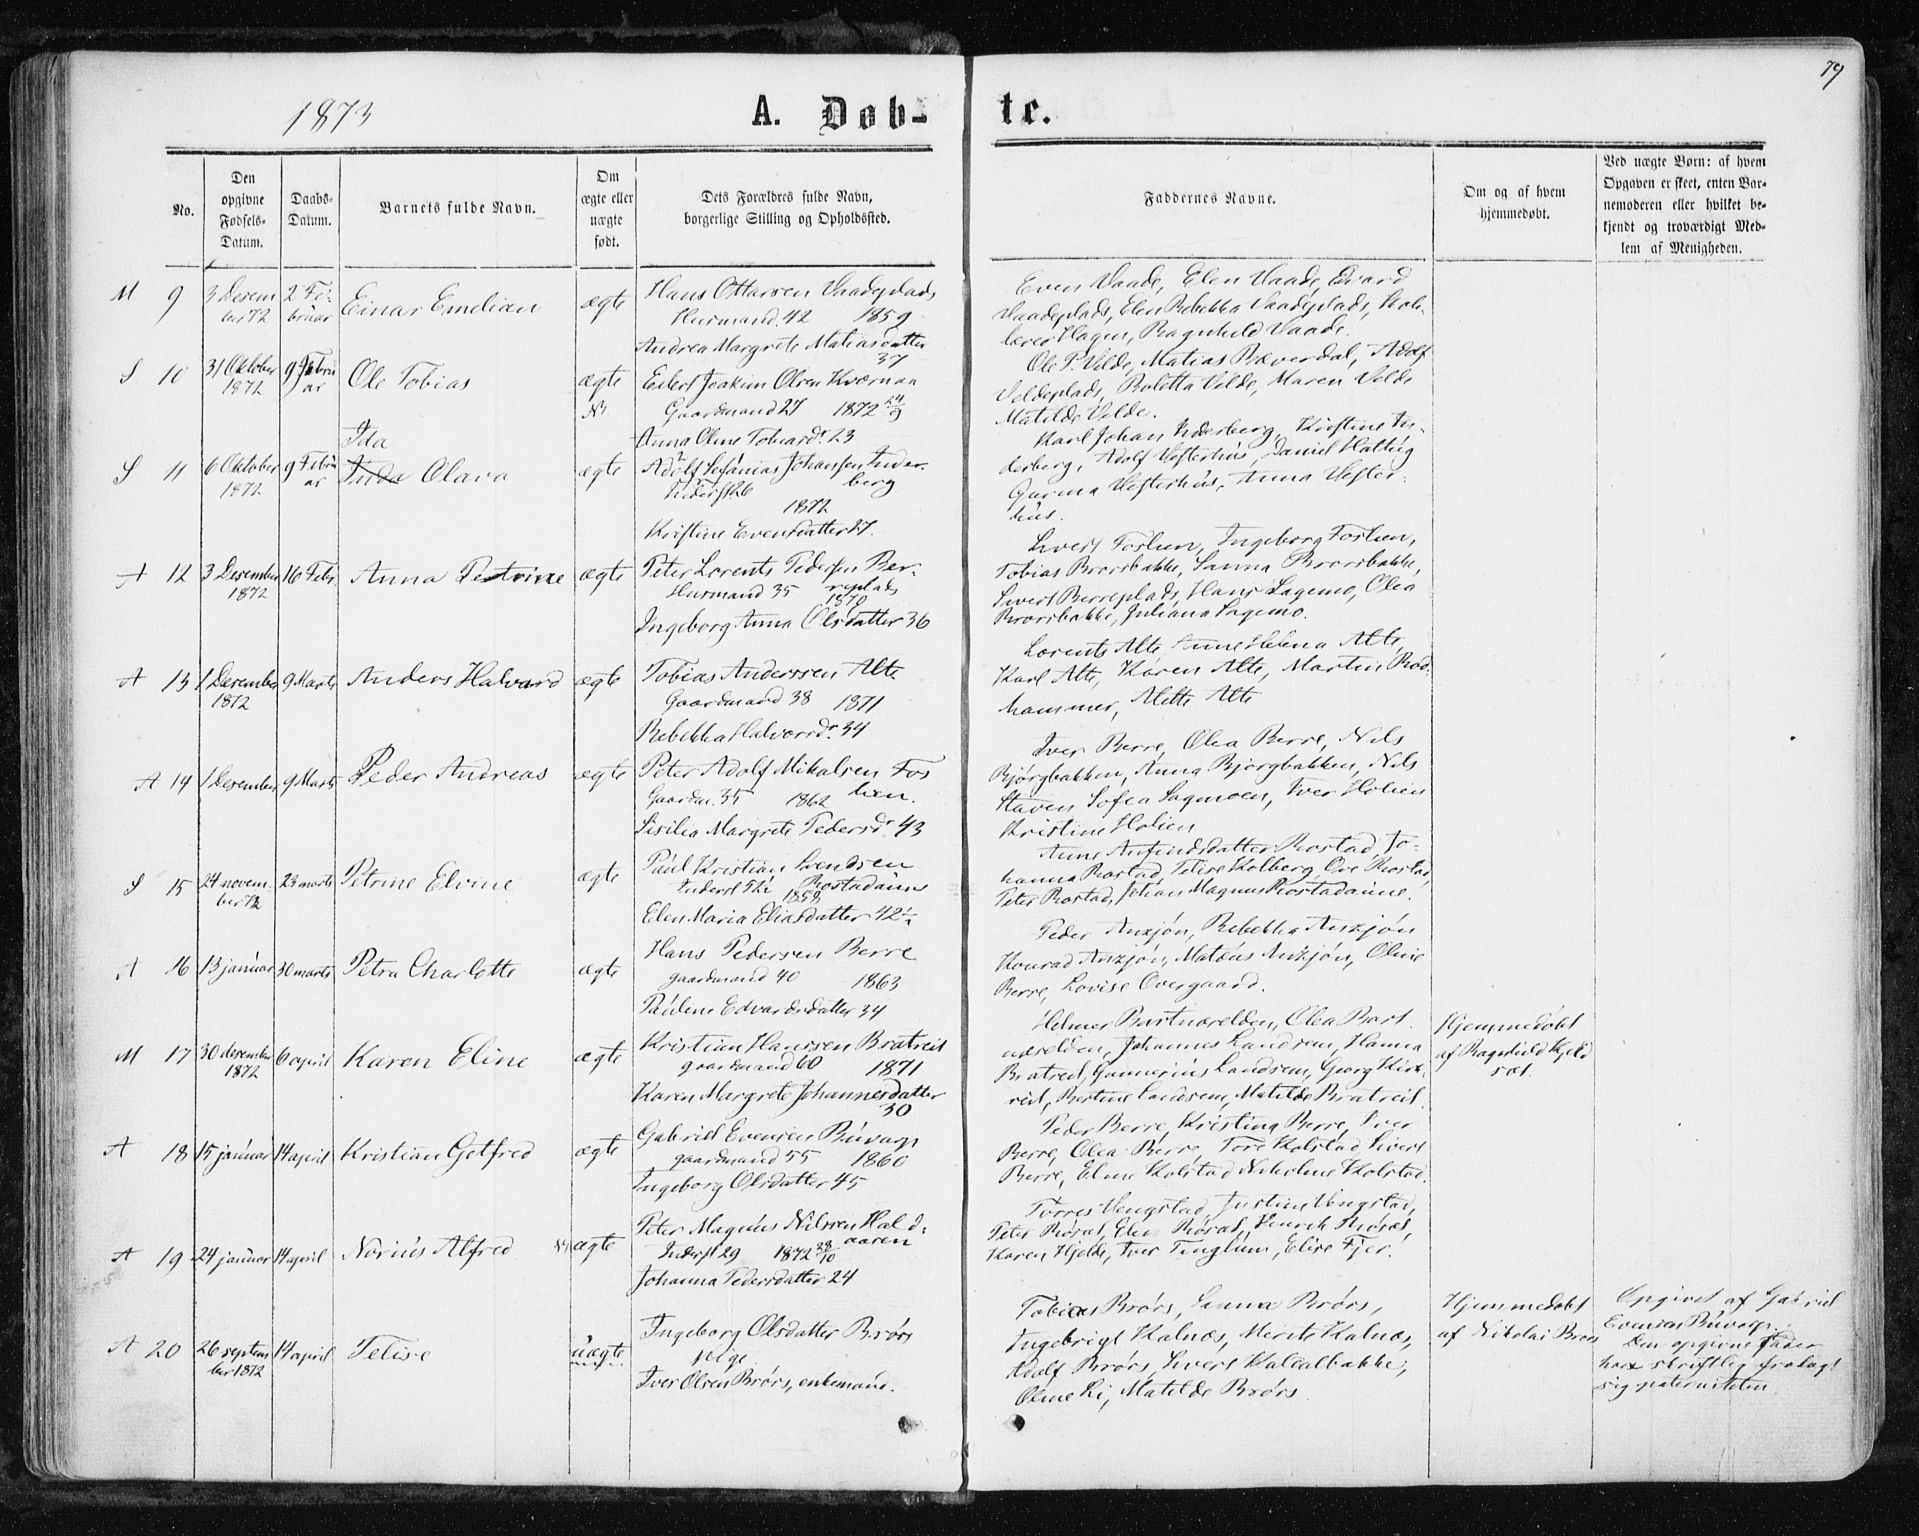 79
1873
A. Døb-
te.
No.
Den opgivne Fødsels-Datum.
Daabs-Datum.
Barnets fulde Navn.
Om ægte eller uægte født.
Dets Forældres fulde Navn, borgerlige Stilling og Opholdssted.
Faddernes Navne.
Om og af hvem hjemmedøbt.
Ved uægte Børn: af hvem Opgaven er skeet, enten Barnemoderen eller hvilket bekjendt og troværdigt Medlem af Menigheden.
M 9 3 Desember 72 2 Februar Einar Emelian ægte
Hans Ottarsen Vaadeplads
Husmand 42 1859
Andrea Margrete Matiasdatter
37
Even Vaade, Elen Vaade, Edvard
Vaadeplads, Elen Rebekka Vaadeplads, Skole-
lærer Hagen, Ragnhild Vaade.
S 10 31 Oktober 1872 9 Februar Ole Tobias ægte
Eilert Joakim Olsen Kværnaa
Gaardmand 27 1872 24/9
Anna Oline Tobiasdr 23
Ole P. Velde, Matias Bæverdal, Adolf
Veldeplads, Roletta Velde, Maren Velde
Matilde Velde.
S 11 6 Oktober 1872 9 Februar Ida Olava ægte
Adolf Sefanias Johansen Inder-
berg
Inderst 26
1872
Kristine Evensdatter 27.
Karl Johan Inderberg, Kristine In-
derberg, Adolf Vesterhus, Daniel Hallvig
Gurina Vesterhus, Anna Vester-
hus.
A 12 3 Desember 1872 16 Febr. Anna Petrine ægte
Peter Lorents Pedersen Ber-
replads
Husmand 35 1870
Ingeborg Anna Olsdatter 36
Sivert Foslien, Ingeborg Foslien,
Tobias Brorsbakke, Sanna Brorsbakke,
Sivert Berreplads, Hans Sagemo, Olea
Brorsbakke, Juliana Sagemo.
A 13 1 Desember 1872 9 Marts Anders Halvard ægte
Tobias Anderssen Alte
Gaardmand 38 1871
Rebekka Halvorsdr 34
Lorents Alte, Anne Helena Alte,
Karl Alte, Karen Alte, Martin Rod-
hammer, Mette Alte
A 14 1 Desember 9 Marts Peder Andreas ægte
Peter Adolf Mikalsen Fos
lien.
Gaardm. 35 1862
Sisilia Margrete Pedersdr 43
Iver Berre, Olea Berre, Nils
Bjørgbakken, Anna Bjørgbakken, Nils
Staven Sofia Sagmoen, Iver Holien
Kristine Holien
S 15 24 november 72 23 marts Petrine Elvine ægte
Paul Kristian Svendsen
Rostadaune
1858
Elen Maria Eliasdatter 42½
Anne Anfindsdatter Rostad, Jo-
hanna Rostad, Telise Kolberg, Ove Rostad,
Peter Rostad, Johan Magnus Rostadaune.
A 16 13 januar 30 marts Petra Charlotte ægte
Hans Pedersen Berre
gaardmand 40 1863
Pauline Edvardsdatter 34
Peder Auxjøn, Rebekka Auxjøn
Konrad Auxjøn, Matæus Auxjøn, Oline
Berre, Lovise Overgaard.
M 17 30 desember 1872 6 april Karen Eline ægte
Kristian Hanssen Bratreit
gaardmand 60 1871
Karen Margrete Johannesdatter
30
Helmer Bartnæselden, Olea Bart
næselden, Johannes Landsem, Hanna
Bratreit, Gunnerius Landsem, Georg Kirk-
reit, Bertine Landsem, Matilde Bratreit.
Hjemmedøbt
af Ragnhild Hjeld
set.
A 18 15 januar 14 april Kristian Gotfred ægte
Gabriel Evensen Buvarp
gaardmand 55 1860
Ingeborg Olsdatter 45
Peder Berre, Kristina Berre, Iver
Berre, Olea Berre, Tore Kolstad, Sivert
Berre, Eline Kolstad, Nikoline Kolstad.
A 19 24 januar 14 april Norius Alfred ægte
Peter Magnus Nilssen Hald-
aaren
Inderst 29 1872 28/10
Johanna Pedersdatter 24
Torres Vengstad, Justine Vengstad,
Peter Røsæt, Elen Røsæt, Henrik Røsæt,
Karen Hjelde, Iver Tinglum, Elise Fjer.
A 20 26 september 1872 14 april Telise uægte
Ingeborg Olsdatter Brørs
pige
Iver Olsen Brørs, enkemand.
Tobias Brørs, Sanna Brørs,
Ingebrigt Kalnæs, Merete Kalnæs,
Adolf Brørs, Sivert Kalealbakke,
Oline Li, Matilde Brørs.
Hjemmedøbt
af Nikolai Brørs
Opgivet af Gabriel
Evensen Buvarp.
Den opgivne fader
har skriftlig fralagt
sig paterniteten